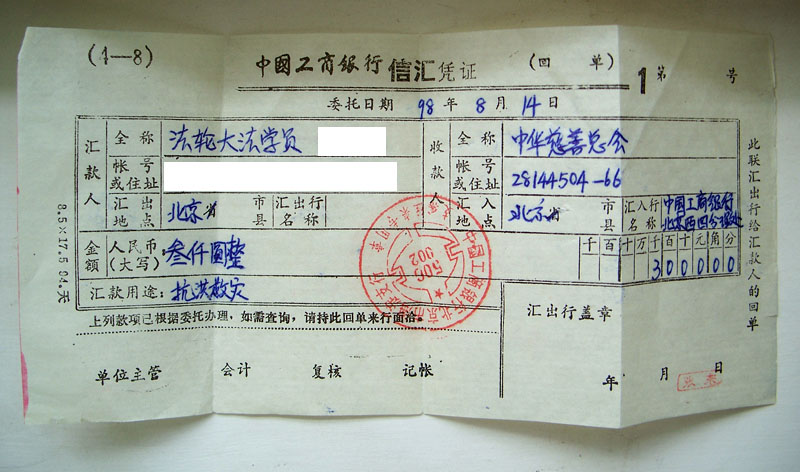 (4—8)
中國工商銀行 信汇凭证 (回 单) 1 第 号
委托日期 98 年 8 月 14 日
汇款人
全称 法轮大法学员
帐号或住址
汇出地点 北京省 市县 汇出行名称
收款人
全称 中华慈善总会
帐号或住址 28144504-66
汇入地点 北京省 市县 汇入行名称 中国工商银行北京西四分理处
金额 人民币(大写) 叁仟圆整
千百十万千百十元角分
300000
汇款用途: 抗洪救灾
上列款项已根据委托办理,如需查询,请持此回单来行面洽。
汇出行盖章
单位主管 会计 复核 记帐
年 月 日
此联汇出行给汇款人的回单
8.5×17.5 94.天
中国工商银行北京市
506
902